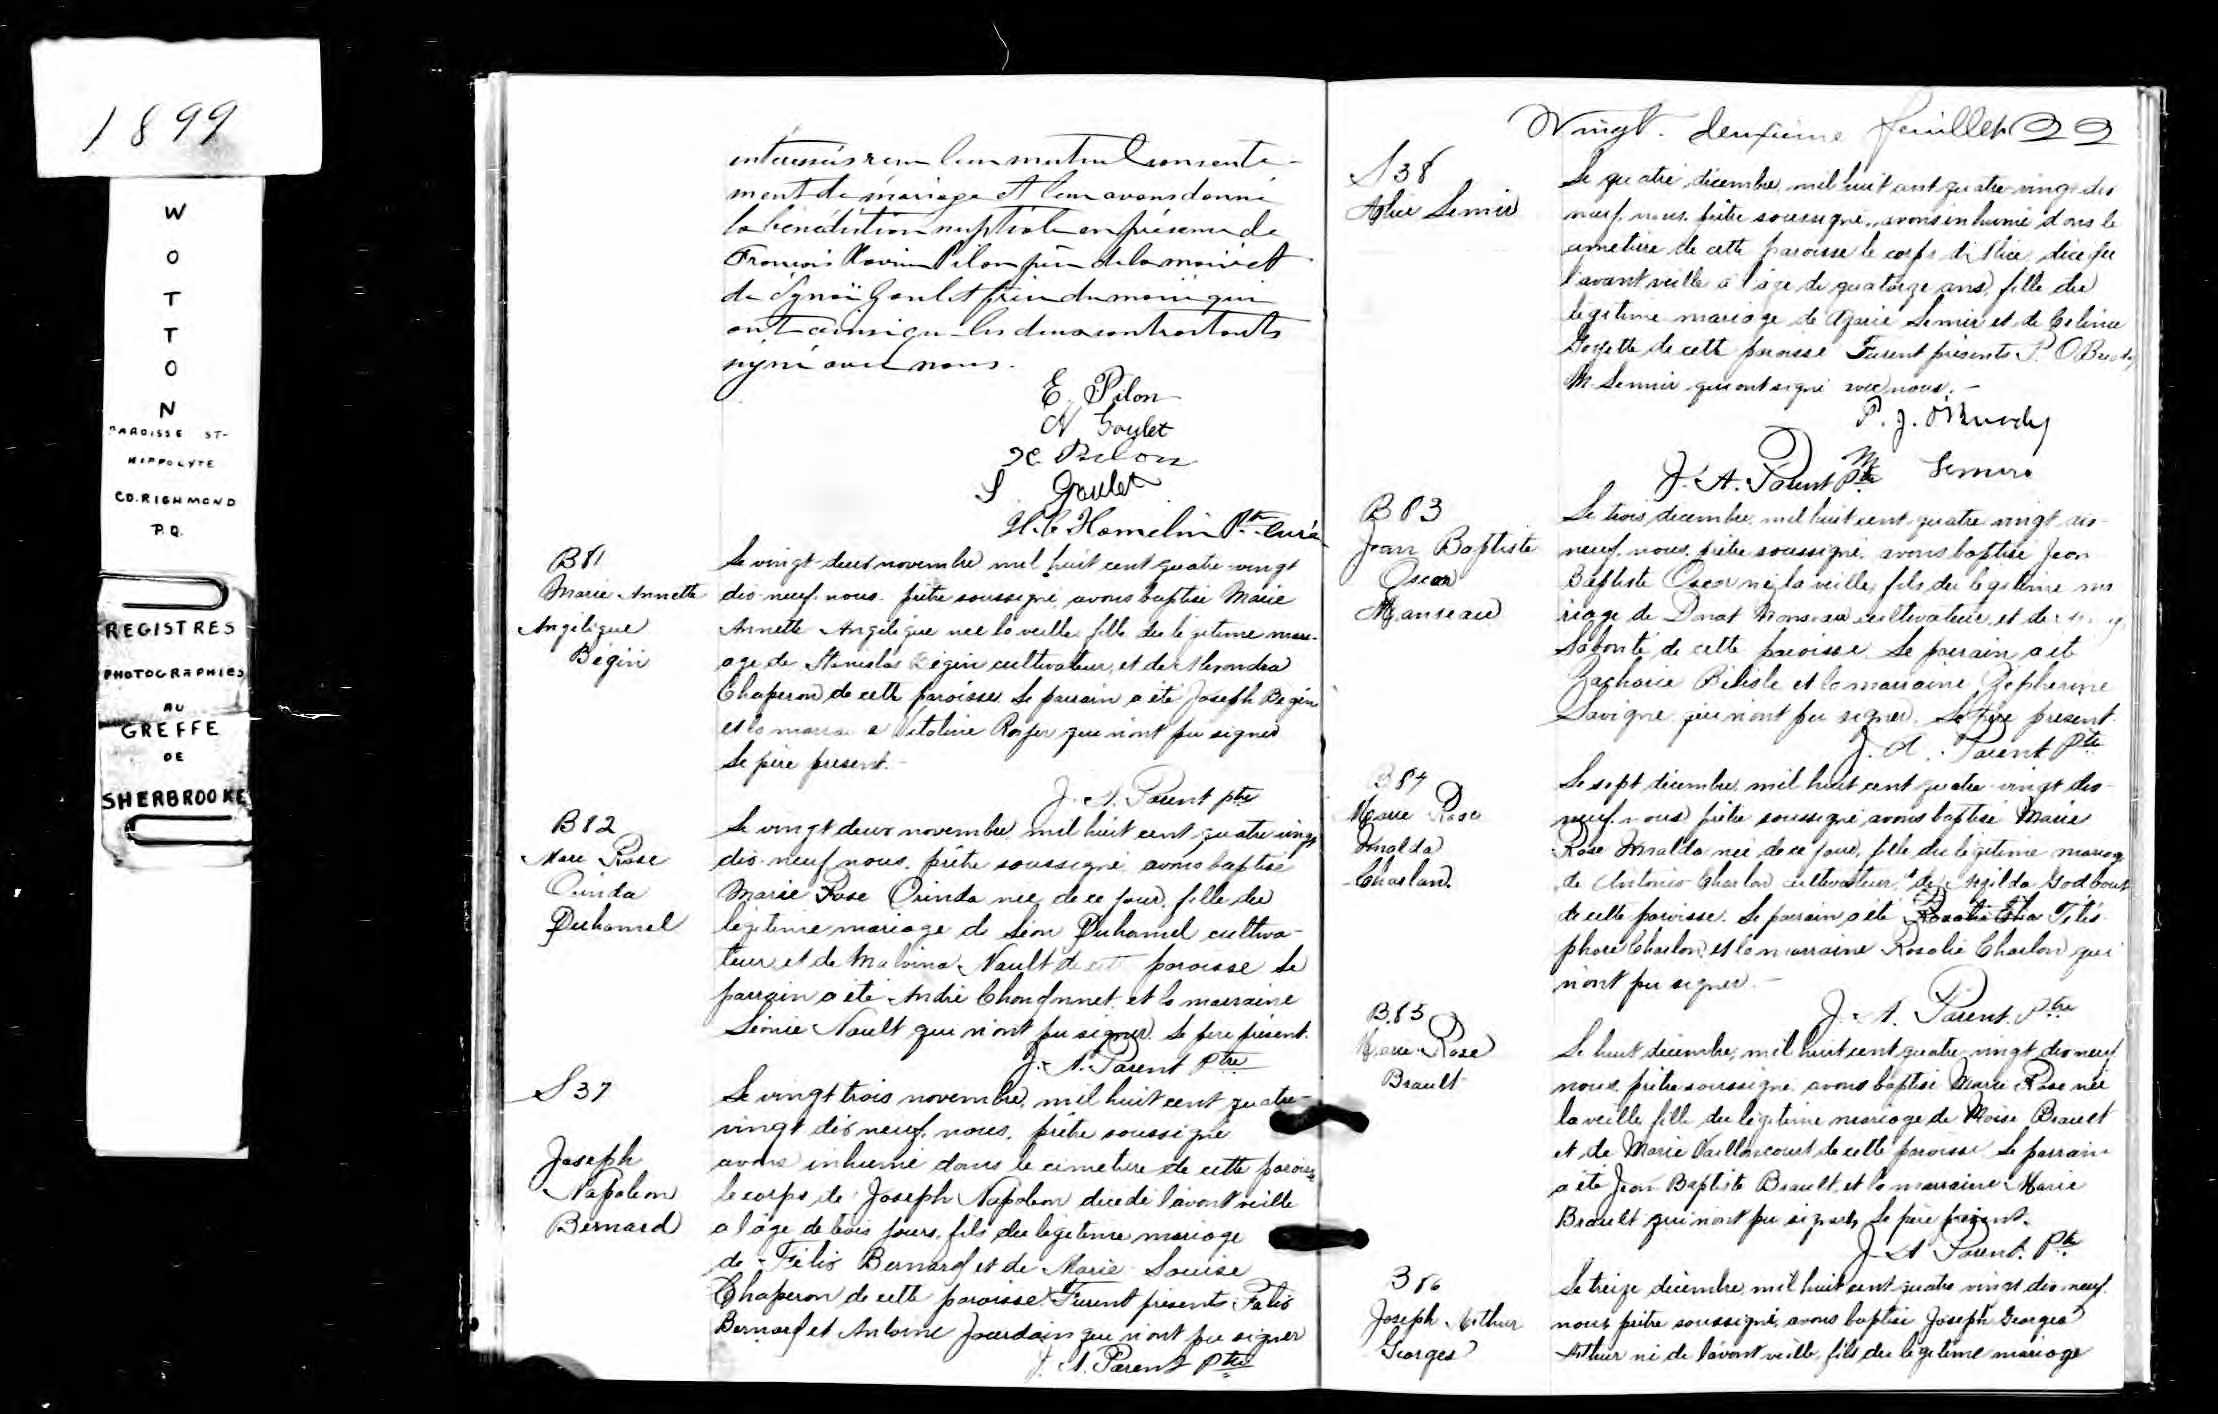 1899
W
O
T
T
O
N
PAROISSE ST-
HIPPOLYTE
CO. RICHMOND
P.Q.
REGISTRES
PHOTOGRAPHIES
AU
GREFFE
DE
SHERBROOKE
mutuel consente-
ment de mariage et leur avons donné
la bénédiction nuptiale en présence de
François Xavier Pilon père de la mariée et
de Goulet frère du marié qui
ont ainsi que les deux contractants
signé avec nous.
E. Pilon
N Goulet
X. Pilon
S. Goulet
Hamelin Ptre Curé
B81
Marie Annette
Angélique
Bégin
Le vingt-deux novembre mil huit cent quatre-vingt
dix-neuf nous prêtre soussigné avons baptisé Marie
Annette Angélique née la veille fille du légitime mari-
age de Stanislas Bégin cultivateur et de Alexandra
Chaperon de cette paroisse. Le parrain a été Joseph Bégin
et la Vitaline qui n'ont pu signer
Le père présent.
J. A. Parent ptre
B82
Marie Rose
Ouinda
Duhamel
Le vingt deux novembre mil huit cent quatre vingt
dix-neuf nous prêtre soussigné avons baptisé
Marie Rose Ouinda née de ce jour, fille du
légitime mariage de Léon Duhamel cultiva-
teur et de Malvina Nault de cette paroisse Le
parrain a été André et la marraine
Léonie Nault qui n'ont pu signer. Le père présent.
J. A. Parent Ptre
S37
Joseph
Napoléon
Bernard
Le vingt trois novembre, mil huit cent quatre-
vingt dix neuf, nous, prêtre soussigné
avons inhumé dans le cimetière de cette paroisse
le corps de Joseph Napoléon décédé l'avant veille
a l'âge de trois jours, fils du légitime mariage
de Félix Bernard et de Marie-Louise
Chaperon de cette paroisse. Furent présents Félix
Bernard et Antoine Jourdain qui n'ont pu signer
J. A. Parent Ptre
Vingt-deuxième feuillet 22
S38
Alice Lemir
Le quatre décembre mil huit cent quatre-vingt dix
neuf, nous, prêtre soussigné, avons inhumé dans le
cimetière de cette paroisse le corps d'Alice, décédée
l'avant veille à l'âge de quatorze ans, fille du
légitime mariage de Lemir et de Célina
Goyette de cette paroisse Furent présents P. O'Brady
M. Lemir qui ont signé avec nous. -
P. J. O'Brady
M Lemire
J. A. Parent Ptre
B83
Jean Baptiste
Oscar
Manseau
Le trois décembre, mil huit cent quatre vingt dix-
neuf, nous, prêtre soussigné, avons baptisé Jean
Baptiste Oscar né la veille, fils du légitime ma
riage de Donat Manseau cultivateur et de
Labonté de cette paroisse. Le parrain a été
Zacharie Bélisle et la marraine Zéphirine
Lavigne qui n'ont pu signer. Le Père présent.
J. A. Parent Ptre
B84
Marie Rose
Imalda
Charland
Le sept décembre, mil huit cent quatre-vingt dix-
neuf, nous prêtre soussigné avons baptisé Marie
Rose Imalda née de ce jour, fille du légitime mariag
de Antonio Charland cultivateur et de Exilda Godbout
de cette paroisse. Le parrain a été Téles-
phore Charland et la marraine Rosalie Charland qui
n'ont pu signer. -
J. A. Parent. Ptre
B.85
Marie-Rose
Brault
Le huit décembre, mil huit cent quatre-vingt dix neuf
nous, prêtre soussigné avons baptisé Marie Rose née
la veille fille du légitime mariage de Moïse Brault
et de Marie Vaillancourt de cette paroisse Le parrain
a été Jean Baptiste Brault et la marraine Marie
Brault qui n'ont pu signer, Le père présent.
J. A Parent. Ptre
B86
Joseph Arthur
Georges
Le treize décembre, mil huit cent quatre vingt dix-neuf
nous prêtre soussigné, avons baptisé Joseph Georges
Arthur né de l'avant veille, fils du légitime mariage